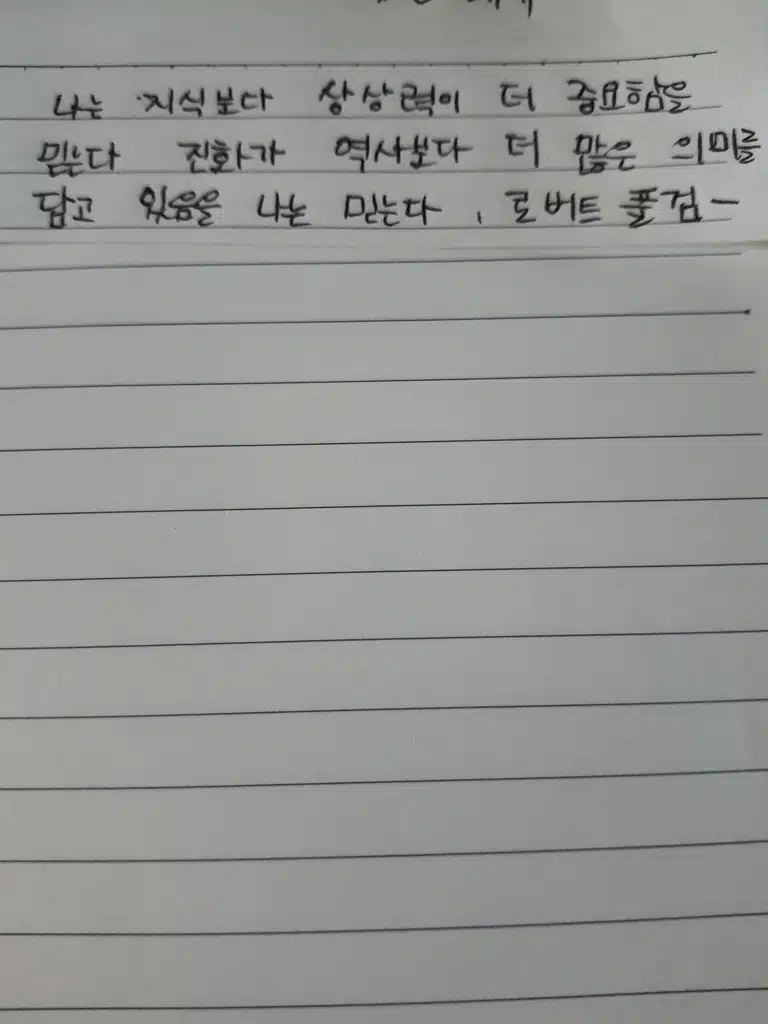 나는 지식보다 상상력이 더 중요함을
믿는다 진화가 역사보다 더 많은 의미를
담고 있음을 나는 믿는다, 로버트 풀검-